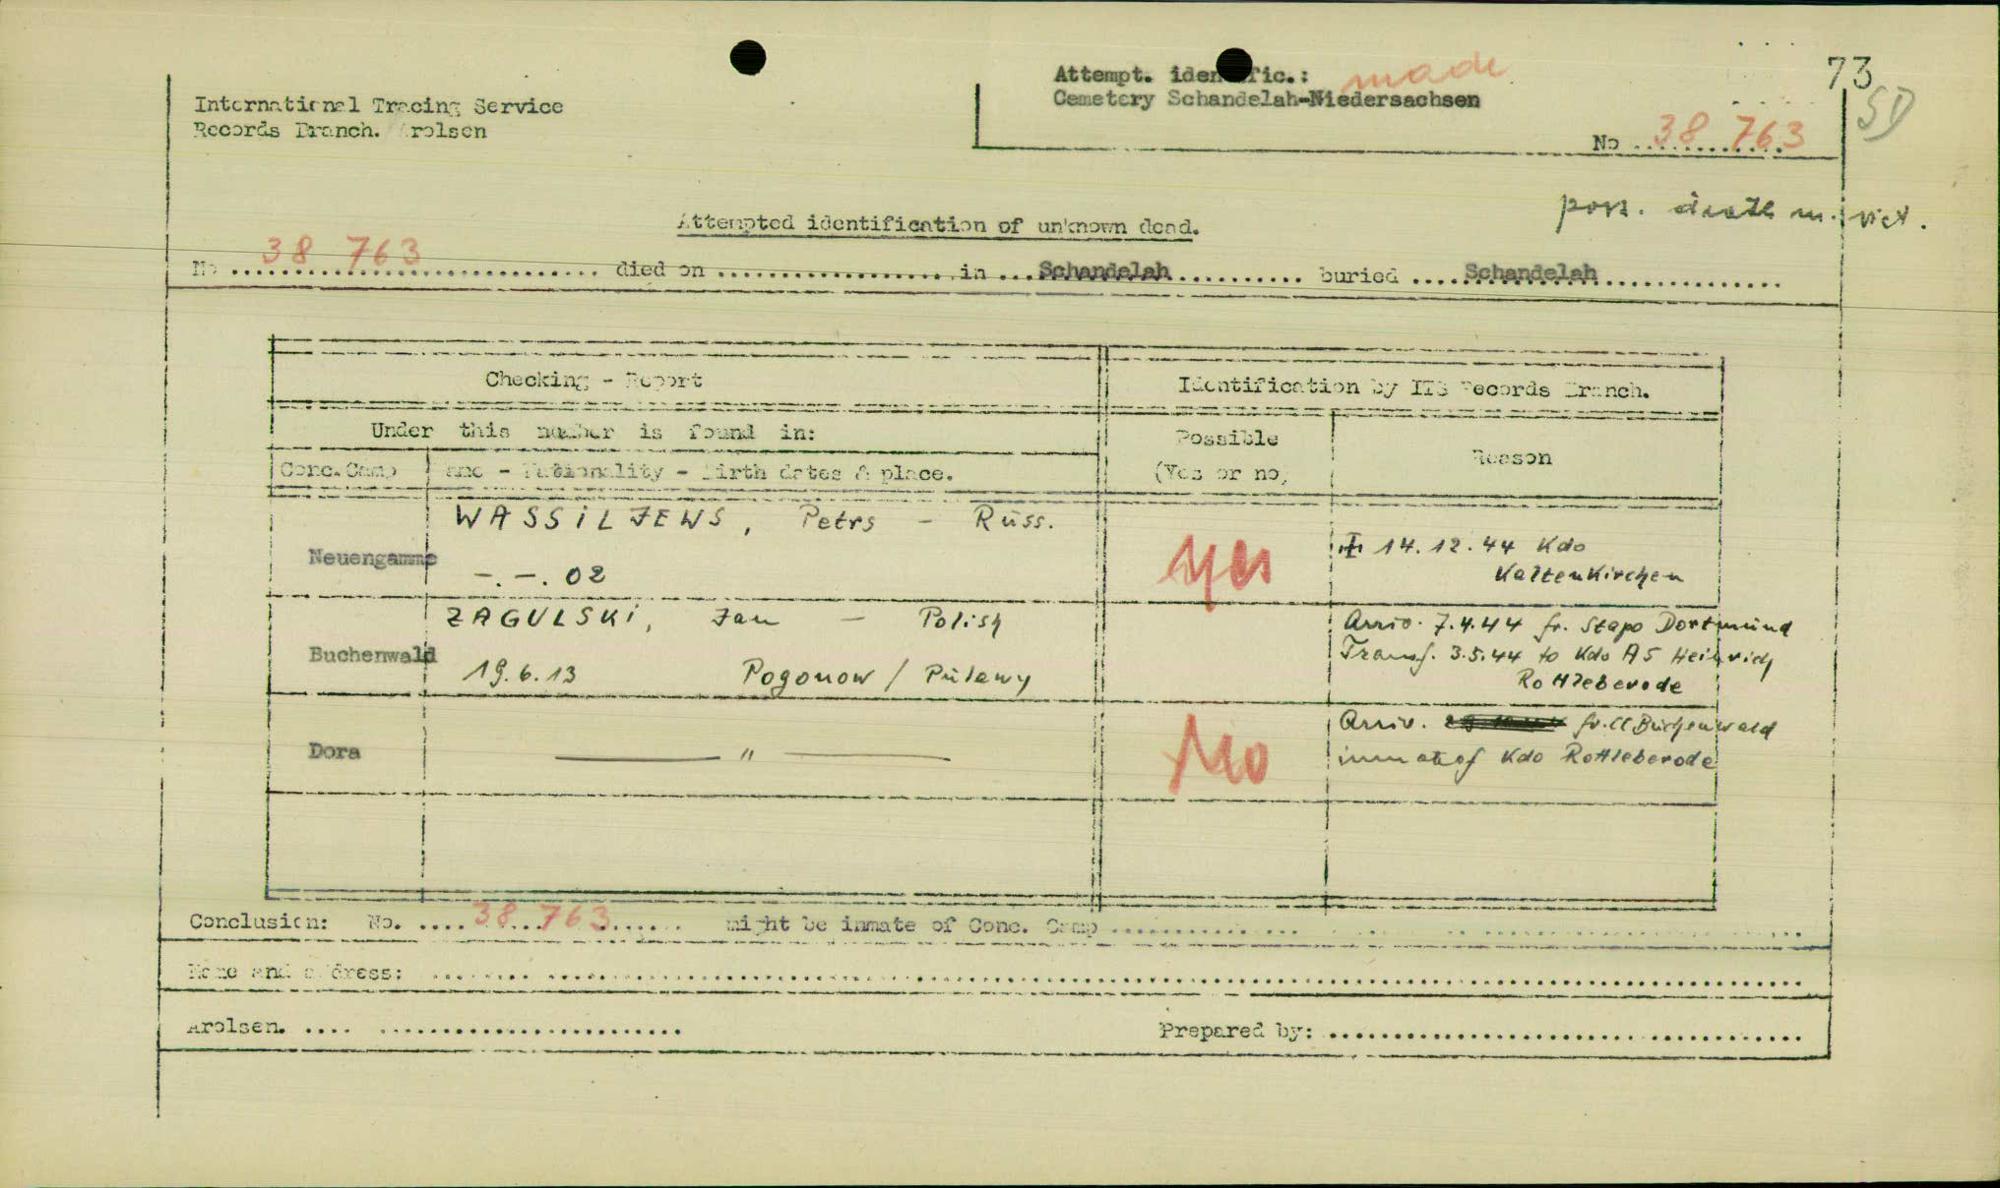 73
SD
Attempt. identific.: made
Cemetery Schandelah-Niedersachsen
International Tracing Service
Records Branch. Arolsen
No ............ 38 763
poss. death m. vict.
Attempted identification of unknown dead.
No 38 763 died on .................... in ... Schandelah .......... buried .... Schandelah ..............
Checking - Report
Identification by ITS Records Branch.
Under this number is found in:
Possible
(Yes or no)
Reason
Conc.Camp
Name - Nationality - Birth dates & place.
WASSILJEWS, Petrs - Russ.
Neuengamme
-.-. 02
yes
14.12.44 Kdo
Kaltenkirchen
ZAGULSKI, Jan - Polish
Buchenwald
19.6.13 Pogonow / Pulawy
Arriv. 7.4.44 fr. Stapo Dortmund
Transf. 3.5.44 to Kdo A5 Heinrich
Rottleberode
Dora
——— " ———
No
Arriv. fr. Cl Buchenwald
inmate of Kdo Rottleberode
Conclusion: No. ....38 763...... might be inmate of Conc. Camp ..............
Name and address: ..............
Arolsen. .... ......................
Prepared by: ..............